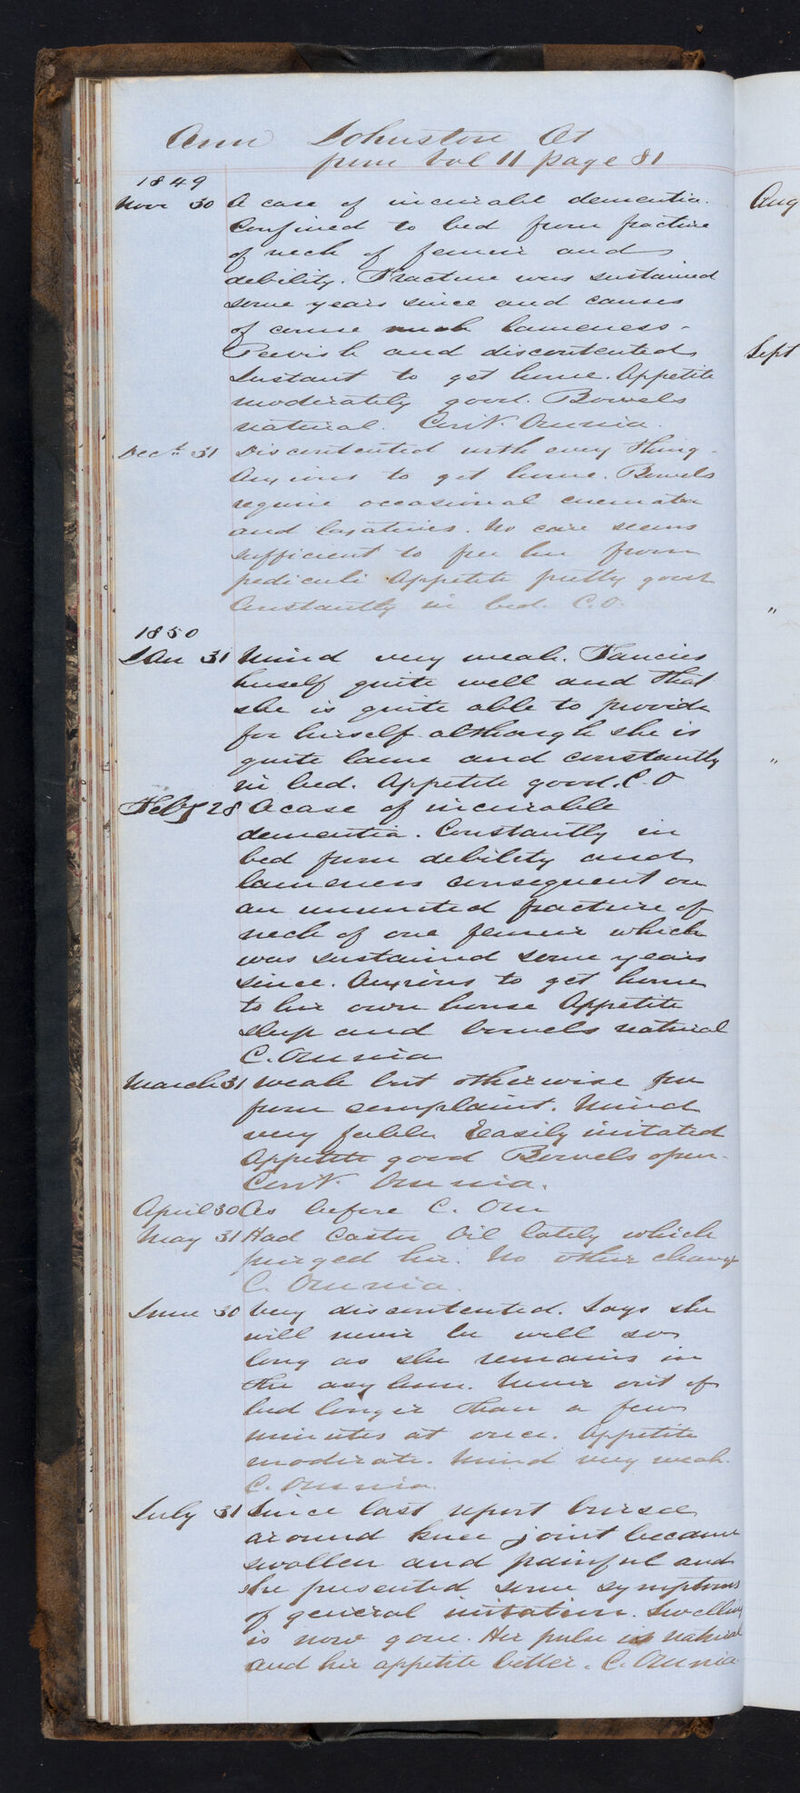 Ann Johnston Æt
from Vol 11 page 81
1849
Novr 30 A case of incurable dementia.
Confined to bed from fracture
of neck of femur and
debility. Fracture was sustained
some years since and causes
of course much lameness.
Peevish and discontented
Instant to get home. Appetite
moderately good. Bowels
natural. Cont. Omnia.
Decr 31 Discontented with every thing.
Anxious to get home. Bowels
require occasional enemata
and laxatives. No care seems
sufficient to free her from
pediculi. Appetite pretty good
Constantly in bed. C.O.
1850
Jan 31 Mind very weak. Fancies
herself quite well and that
she is quite able to provide
for herself although she is
quite lame and constantly
in bed. Appetite good. C.O
Feby 28 A case of incurable
dementia. Constantly in
bed from debility and
lameness consequent on
an ununited fracture of
neck of one femur which
was sustained some years
since. Anxious to get home
to her own house Appetite
sleep and bowels natural
C. Omnia
March 31 Weak but otherwise free
from complaint. Mind
very feeble Easily irritated
Appetite good Bowels open.
Cont. Omnia.
April 30 As before C. Om
May 31 Had Castor Oil lately which
purged her. No other change
C. Omnia.
June 30 Very discontented. Says she
will never be well so
long as she remains in
the asylum. Never out of
bed longer than a few
minutes at once. Appetite
moderate. Mind very weak.
C. Omnia.
July 31 Since last report bursae
around knee joint became
swollen and painful and
she presented some symptoms
of general irritation. Swelling
is now gone. Her pulse is natural
and her appetite better. C. Omnia
Aug
Sept
"
"